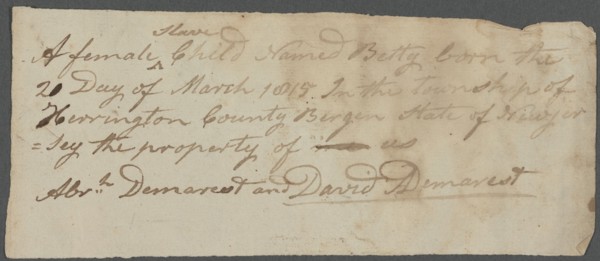 A female slave Child Named Betty born the
20 Day of March 1815. In the township of
Herrington County Bergen State of Newjer
=sey the property of us
Abrm. Demarest and David Demarest